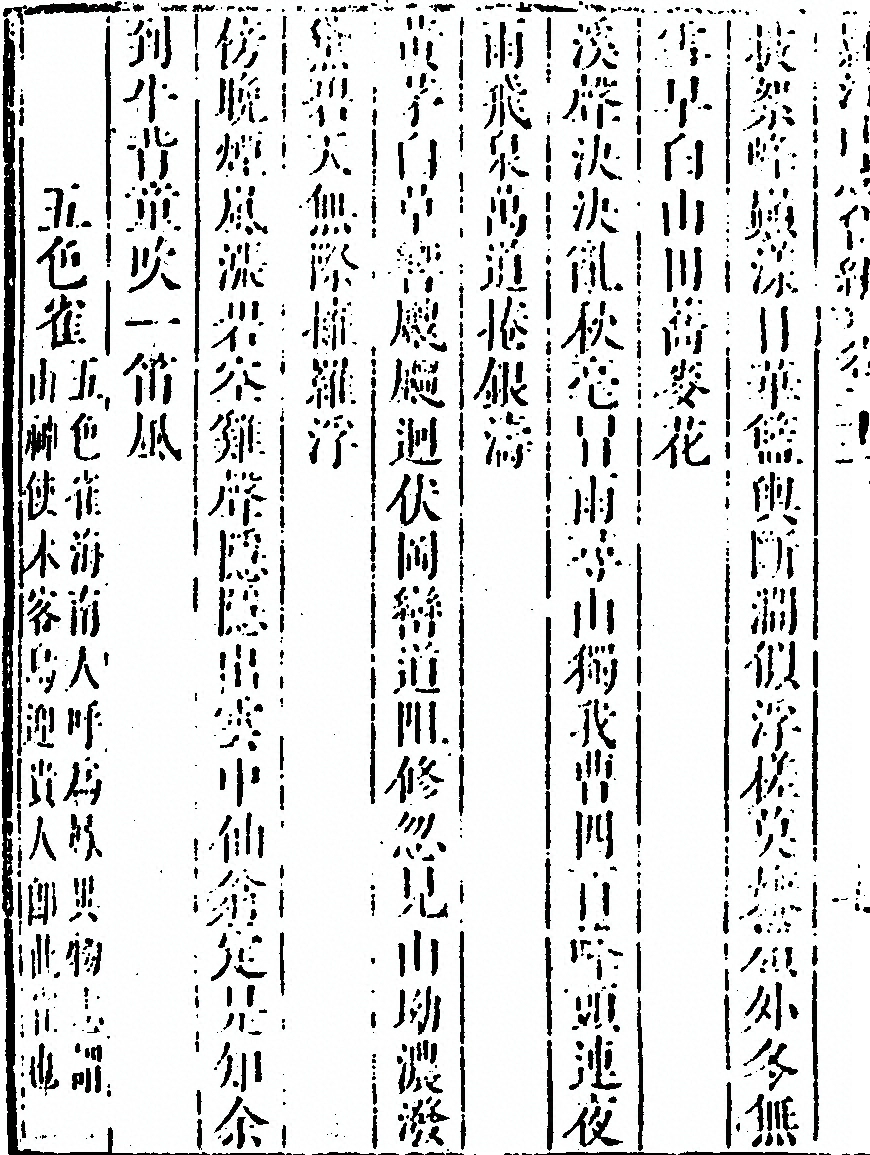 絮峰巔漾日華籃輿斷澗似浮槎莫外冬無
雪早白山田蕎麥花
溪聲決決亂秋毫冒雨尋山獨我曹四百峰頭連夜
雨飛泉萬道捲銀濤
黃茅白草響颼颼迴伏岡巒道阻修忽見山坳濃潑
黛碧天無際擁羅浮
傍晚煙嵐濃碧空雞聲隱隱出雲中仙翁定是知余
到牛背童吹一笛風
五色雀
五色雀海南人呼為異物志謂
山神使木客鳥迎貴人即此雀也